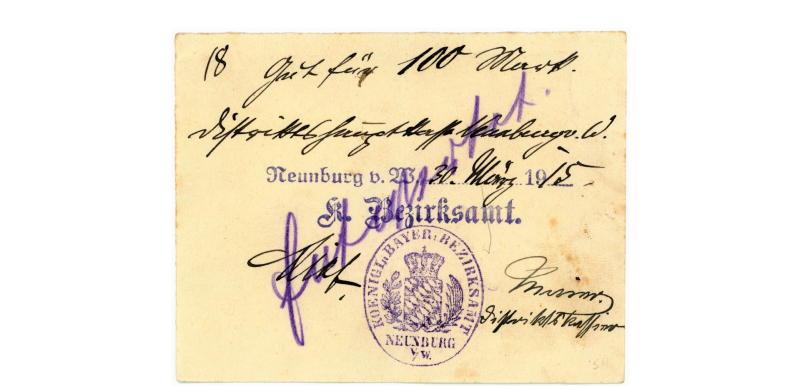 18 Gut für 100 Mark.
Distriktshauptkasse Neunburg v. W.
Neunburg v. W. 30. März 1915.
K. Bezirksamt.
KOENIGL. BAYER. BEZIRKSAMT
NEUNBURG
V/W.
Distriktskassier